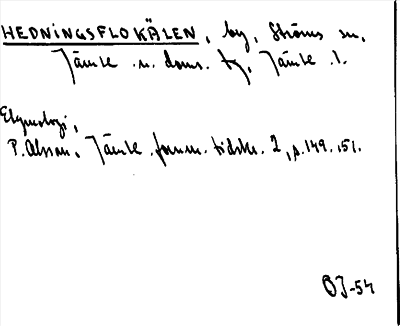 HEDNINGSFLOKÄLEN, by, Ströms sn,
Jämtl. n. doms. tg, Jämtl. l.
Etymologi,
P. Olsson, Jämtl. fornm. tidskr. 2, s. 149. 151.
OJ-54